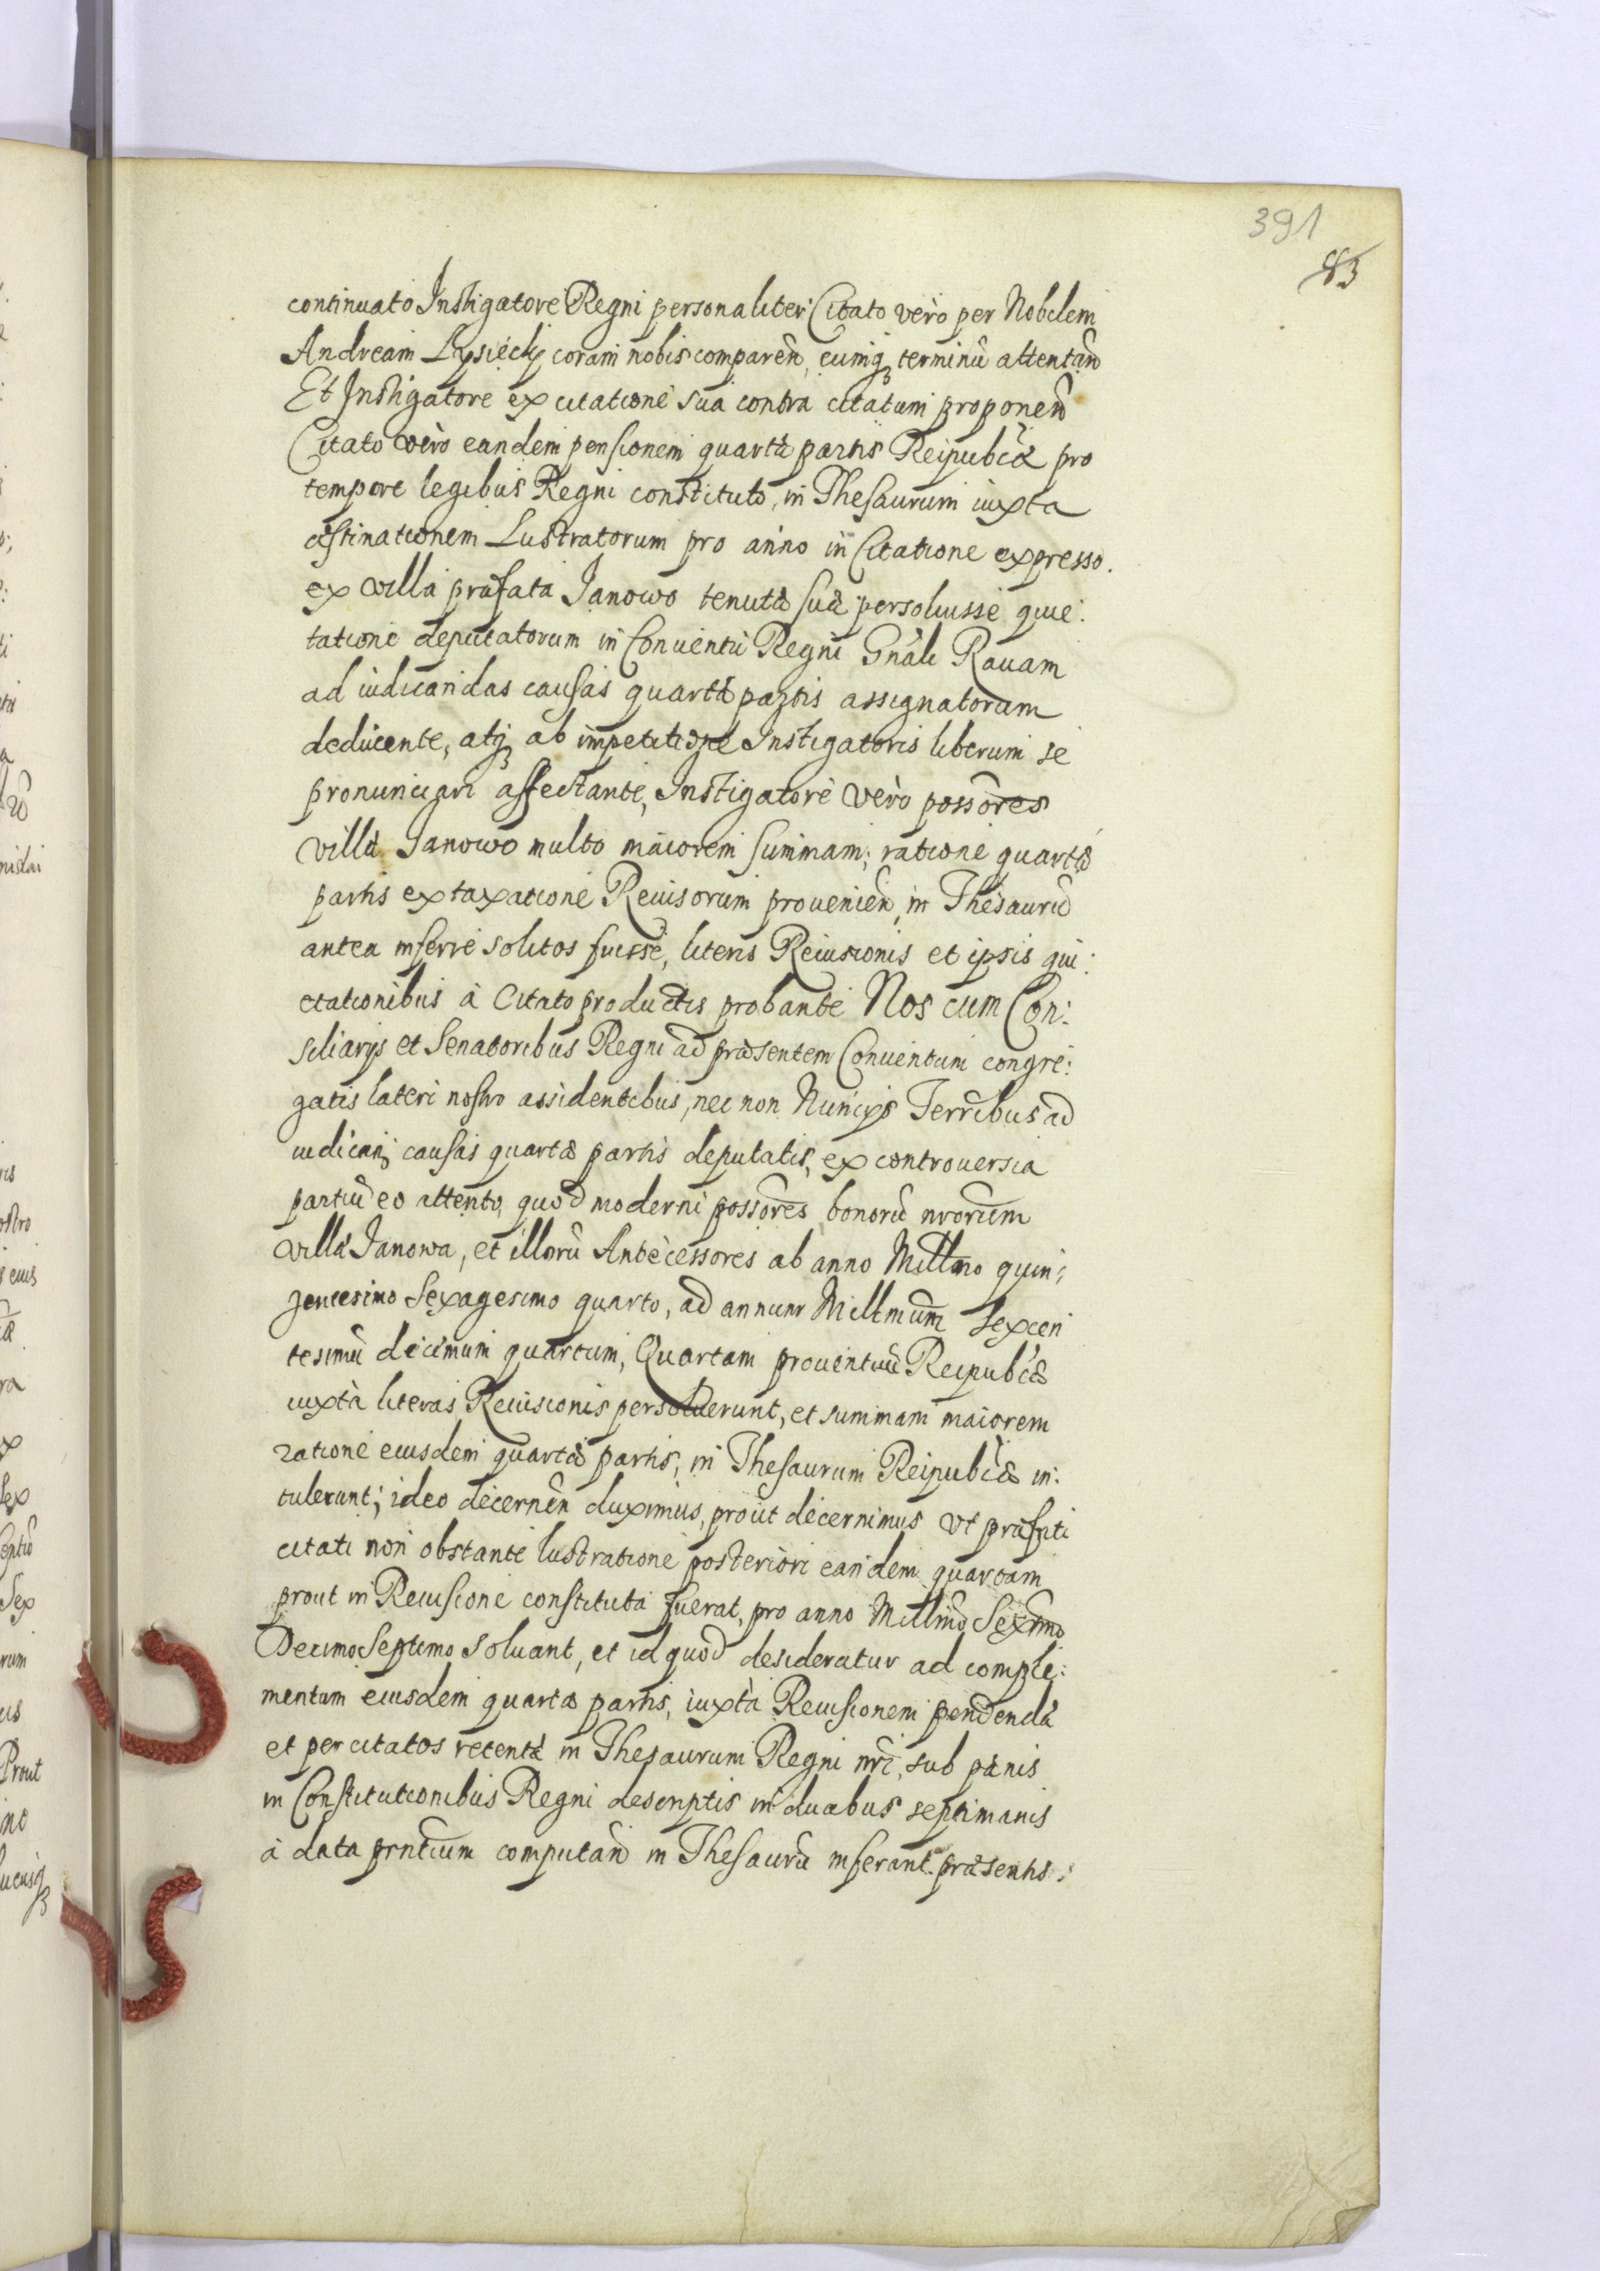 391
83
continuato Instigatore Regni personaliter Citato vero per Nobilem
Andream Lysiecky coram nobis comparen̄, eumq₃ terminū attentan̄
Et Instigatore ex citatione sua contra citatum proponen̄
Citato vero eandem pensionem quartæ partis Reipublcæ pro
tempore legibus Regni constituto, in Thesaurum iuxta
æstinationem Lustratorum pro anno in Citatione expresso.
ex villa præfata Janowo tenutæ suæ persoluisse quie:
tatione deputatorum in Conuentu Regni Gnāli Rauam
ad iudicandas causas quartæ partis assignatorum
deducente, atq₃ ab impetitione Instigatoris liberum se
pronunciari affectante, Instigatore vero possōres
villæ Janowo multo maiorem summam, ratione quartæ
partis ex taxatione Reuisorum prouenien̄, in Thesaurū
antea inferre solitos fuisse, literis Reuisionis et ipsis qui:
etationibus à Citato productis probante Nos cum Con:
siliarijs et Senatoribus Regni ad præsentem Conuentum congre:
gatis lateri nostro assidentibus, nec non Nuncijs Terrībus ad
iudican̄ causas quartæ partis deputatis, ex controuersia
partiū eo attento, quod moderni possōres bonorū nrōrum
villæ Janowa, et illorū Antecessores ab anno Millmo quin:
gentesimo Sexagesimo quarto, ad annum Millmum Sexcen
tesimū decimum quartum, Quartam prouentuū Reipublcæ
iuxta literas Reuisionis persoluerunt, et summam maiorem
ratione eiusdem quartæ partis, in Thesaurum Reipublcæ in:
tulerunt; ideo decernen̄ duximus, prout decernimus vt præfati
citati non obstante lustratione posteriori eandem quartam
prout in Reuisione constituta fuerat, pro anno Millmo Sexmo
Decimo Septimo soluant, et id quod desideratur ad comple:
mentum eiusdem quartæ partis, iuxta Reuisionem pendendæ
et per citatos retentæ in Thesaurum Regni nrī, sub pænis
in Constitutionibus Regni descriptis in duabus septimanis
à data prntium computan̄ in Thesaurū inferant. præsentis: